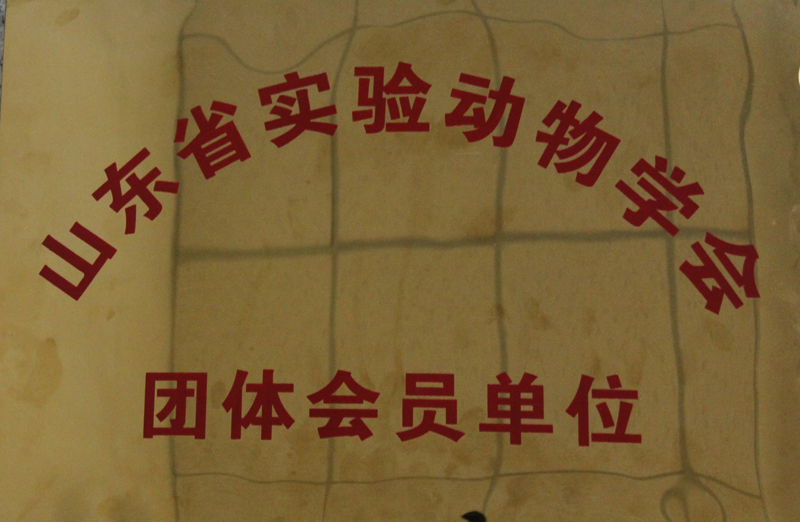 山东省实验动物学会
团体会员单位